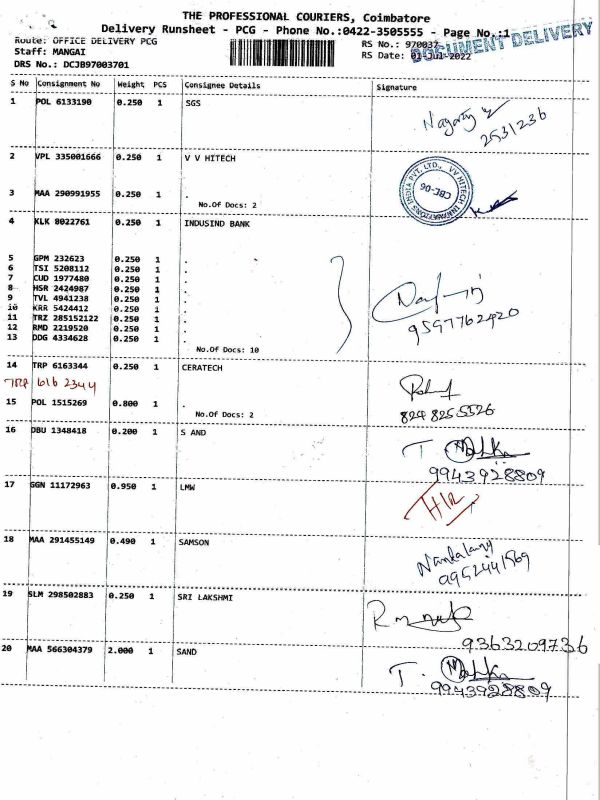 THE PROFESSIONAL COURIERS, Coimbatore
Delivery Runsheet - PCG - Phone No.:0422-3505555 - Page No.:1
DOCUMENT DELIVERY
Route: OFFICE DELIVERY PCG
RS No.: 970037
Staff: MANGAI
RS Date: 01-Jul-2022
DRS No.: DCJB97003701
S No Consignment No Weight PCS Consignee Details Signature
1 POL 6133190 0.250 1 SGS
2531236
2 VPL 335001666 0.250 1 V V HITECH
3 MAA 290991955 0.250 1 .
No.Of Docs: 2
4 KLK 8022761 0.250 1 INDUSIND BANK
5 GPM 232623 0.250 1 .
6 TSI 5208112 0.250 1 .
7 CUD 1977480 0.250 1 .
8 HSR 2424987 0.250 1 .
9 TVL 4941238 0.250 1 .
10 KRR 5424412 0.250 1 .
11 TRZ 285152122 0.250 1 .
12 RMD 2219520 0.250 1 .
13 DDG 4334628 0.250 1 .
9597762420
No.Of Docs: 10
14 TRP 6163344 0.250 1 CERATECH
TRP 616 2344
15 POL 1515269 0.800 1 .
No.Of Docs: 2
8248255326
16 DBU 1348418 0.200 1 S AND
9943928809
17 GGN 11172963 0.950 1 LMW
18 MAA 291455149 0.490 1 SAMSON
19 SLM 298502883 0.250 1 SRI LAKSHMI
9363209736
20 MAA 566304379 2.000 1 SAND
9943928809